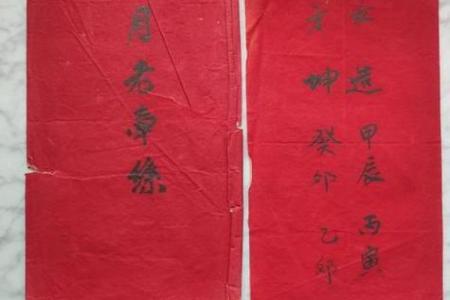 月老牵絲
造甲辰丙寅
坤癸卯乙卯